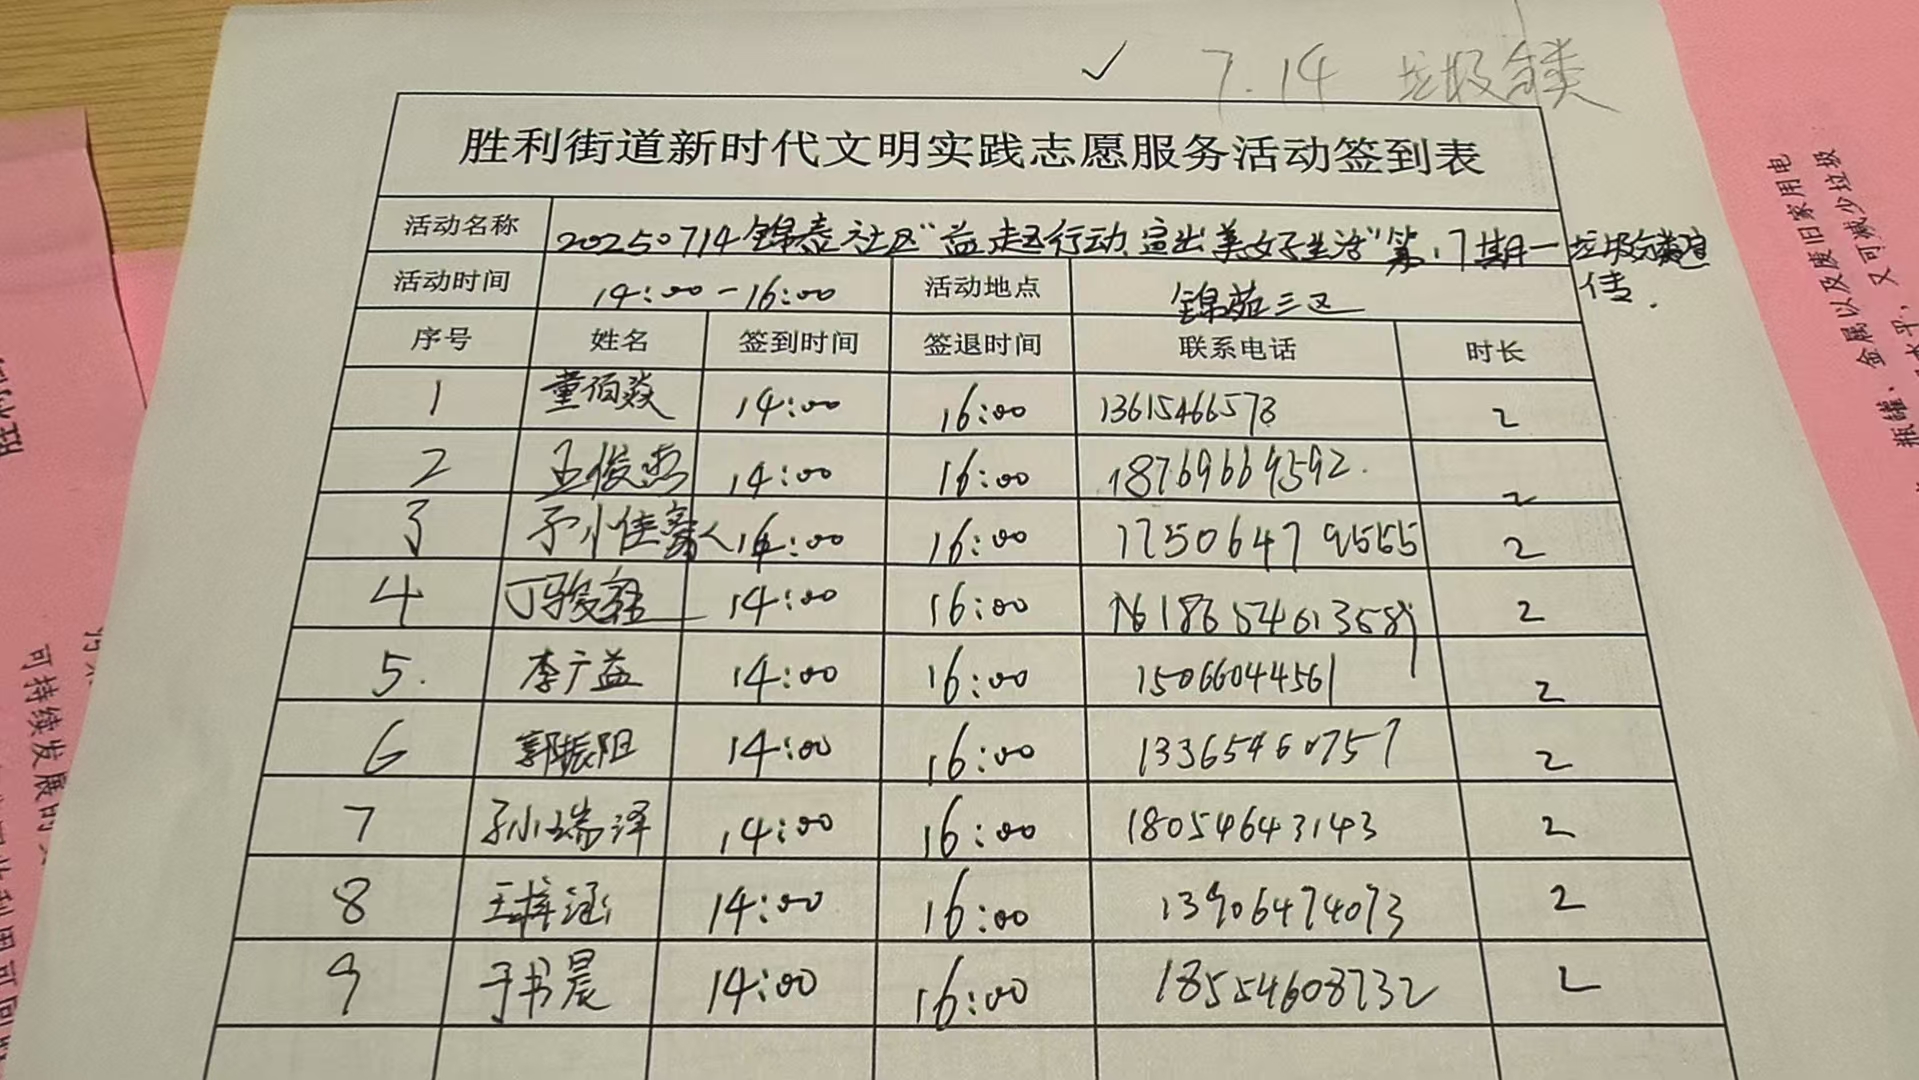 ✓ 7.14 垃圾分类
胜利街道新时代文明实践志愿服务活动签到表
活动名称 20250714锦泰社区“益起行动,宣出美好生活”第17期—垃圾分类宣
传.
活动时间 14:00-16:00 活动地点 锦苑三区
序号 姓名 签到时间 签退时间 联系电话 时长
1 董佰焱 14:00 16:00 13615466578 2
2 王俊杰 14:00 16:00 18769669592. 2
3 孙佳豪 14:00 16:00 17506479555 2
4 丁骏鑫 14:00 16:00 2
5. 李广益 14:00 16:00 15066044561 2
6 郭振阳 14:00 16:00 13365460757 2
7 孙瑞泽 14:00 16:00 18054643143 2
8 王梓涵 14:00 16:00 13906474073 2
9 于书晨 14:00 16:00 18554608732 2
瓶罐、金属以及废旧家用电
又可减少垃圾
可持续发展的